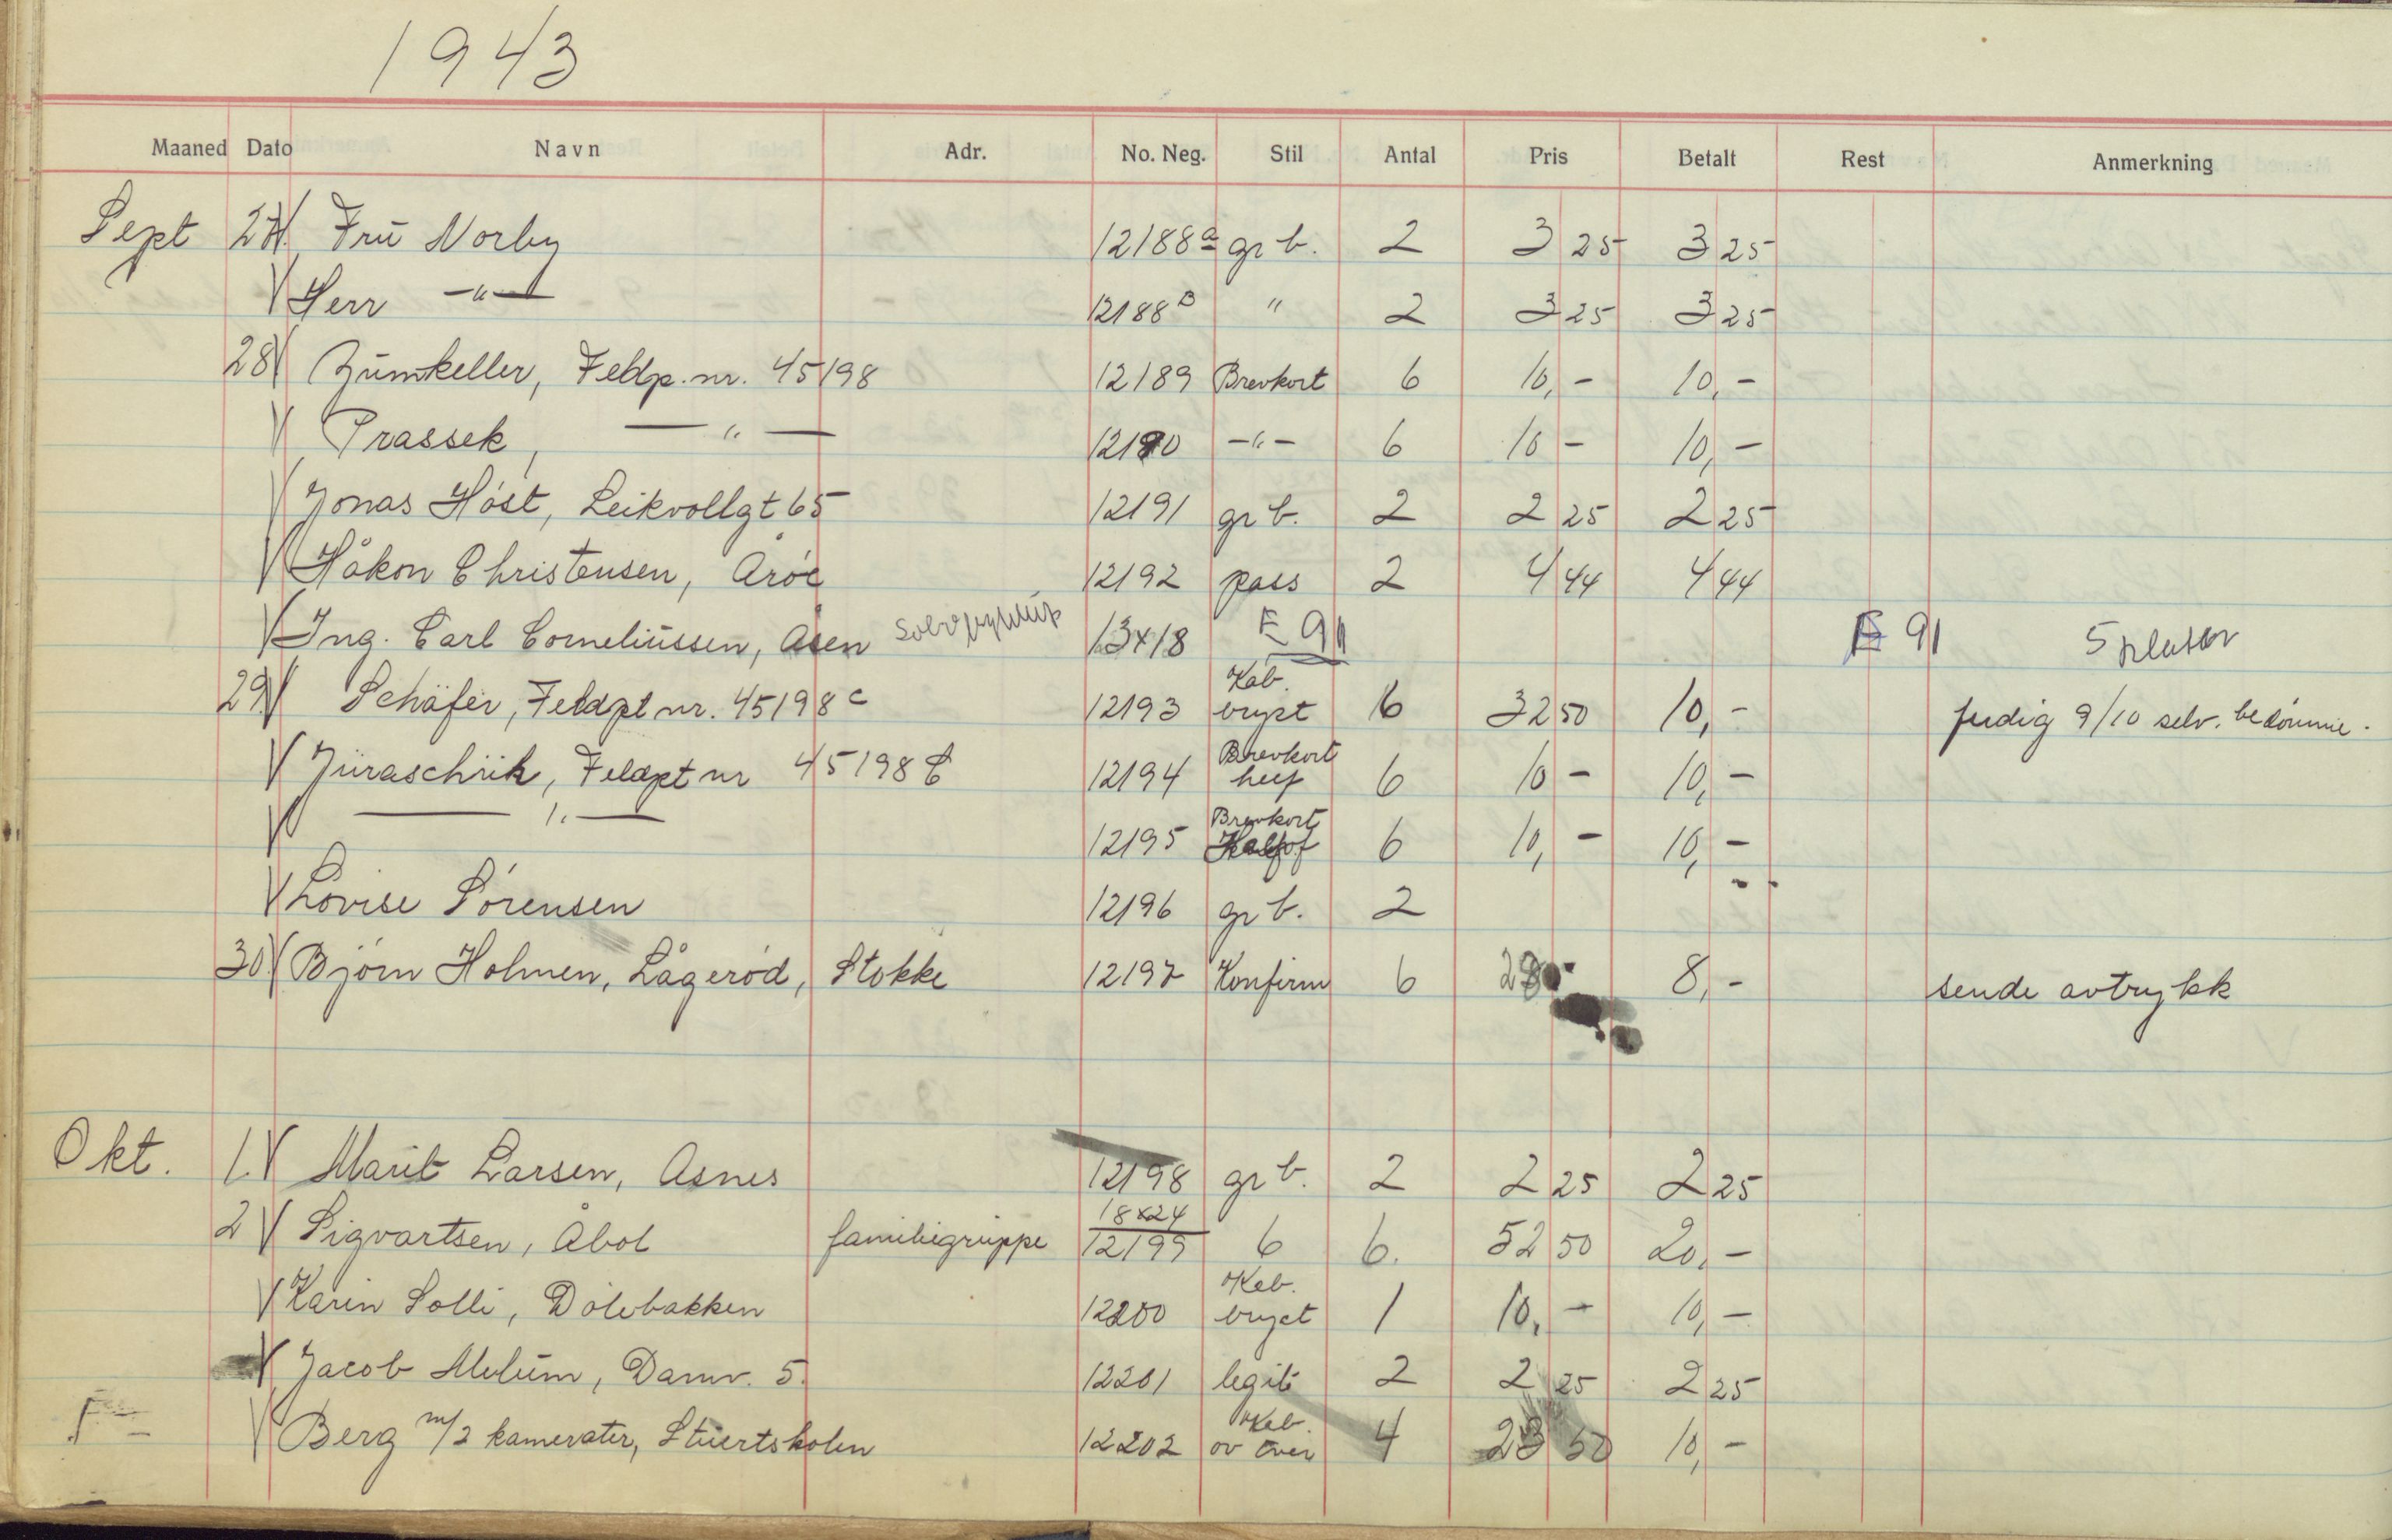 1943
Maaned Dato Navn Adr. No. Neg. Stil Antal Pris Betalt Rest Anmerkning
Sept 27 Fru Norby 12188a gr b. 2 3 25 3 25
Herr —"— 12188B " 2 3 25 3 25
28 Zumkeller, Feldp. nr. 45198 12189 Brevkort 6 10,- 10,-
Prassek, —"— 12190 -"- 6 10 - 10,-
Jonas Höst, Leikvollgt 65 12191 gr b. 2 2 25 2 25
Håkon Christensen, Aröe 12192 pass 2 4 44 4 44
Ing. Carl Corneliussen, Åsen 13x18 E 91 E 91 5 plater
29 Schäfer, Feldpt nr. 45198 c 12193 Kab. bryst 6 32 50 10,- ferdig 9/10 selv. bedömme.
Juraschik, Feldpt nr 45198 C 12194 Brevkort helf 6 10 - 10,-
—"— 12195 Brevkort 6 10,- 10,-
Lovise Sörensen 12196 gr b. 2
30 Björn Holmen, Lågeröd, Stokke 12197 Konfirm 6 28 8,- sende avtrykk
Okt. 1. Marit Larsen, Asnes 12198 gr b. 2 2 25 2 25
2 Sigvartsen, Åbol familiegruppe 18x24 12199 6 6. 52 50 20,-
Karin Solli, Dölebakken 12200 Kab. bryst 1 10,- 10,-
Jacob Melum, Damv. 5. 12201 legit 2 2 25 2 25
Berg m/2 kamerater, Stuertskolen 12202 Kab. ov tver 4 23 50 10,-